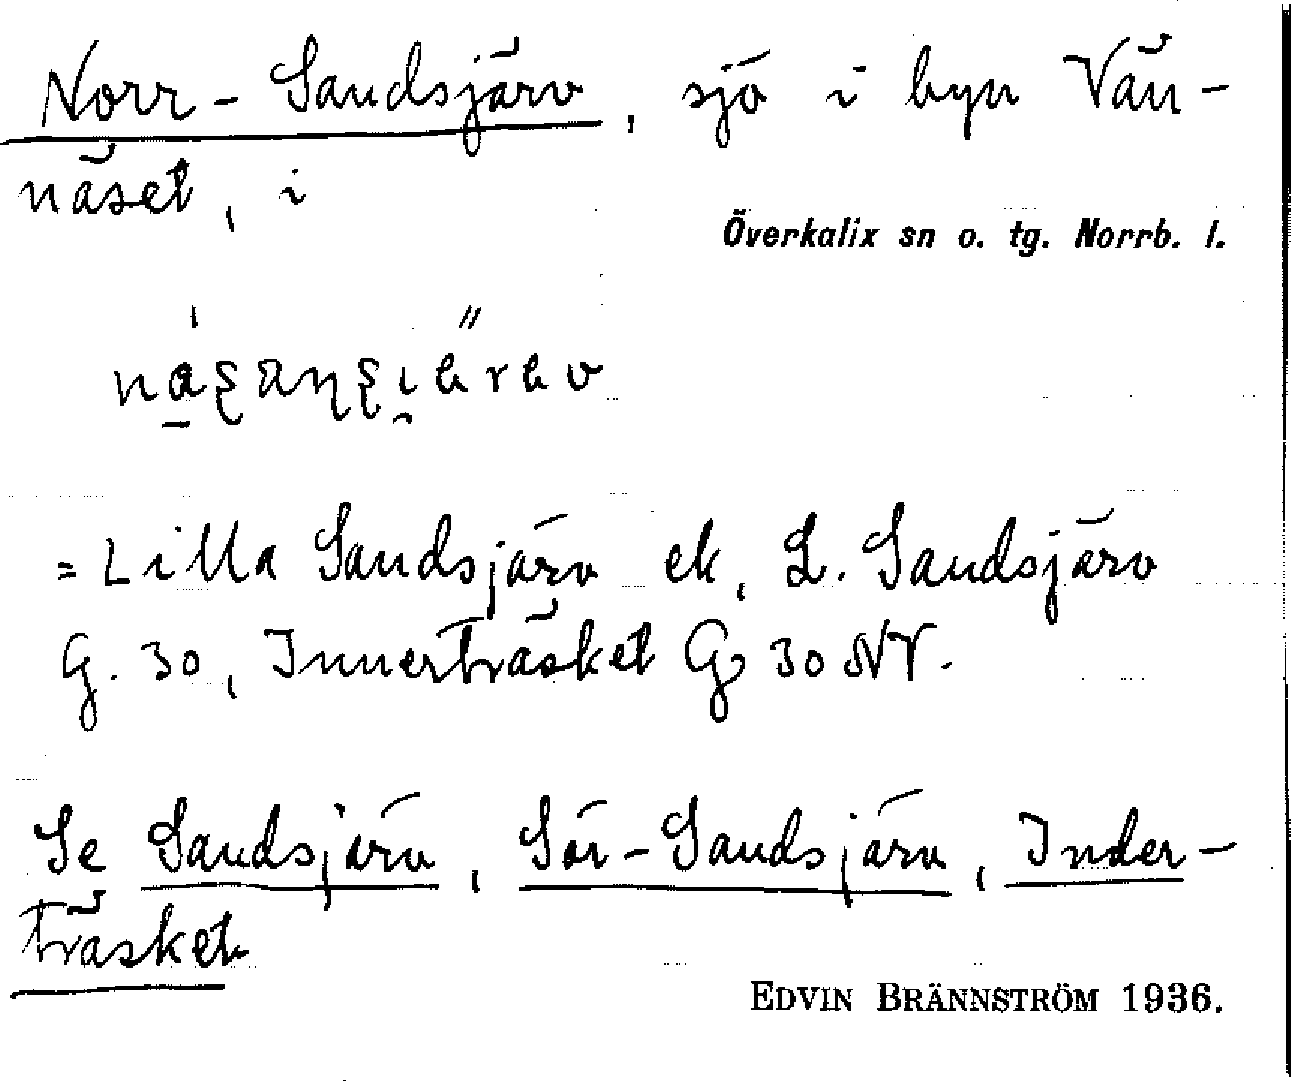 Norr-Sandsjärv, sjö i byn Vän-
näset, i
Överkalix sn o. tg. Norrb. l.
= Lilla Sandsjärv ek, L. Sandsjärv
G. 30, Innerträsket G 30 NV.
Se Sandsjärv, Sör-Sandsjärv, Inder-
träsket
EDVIN BRÄNNSTRÖM 1936.